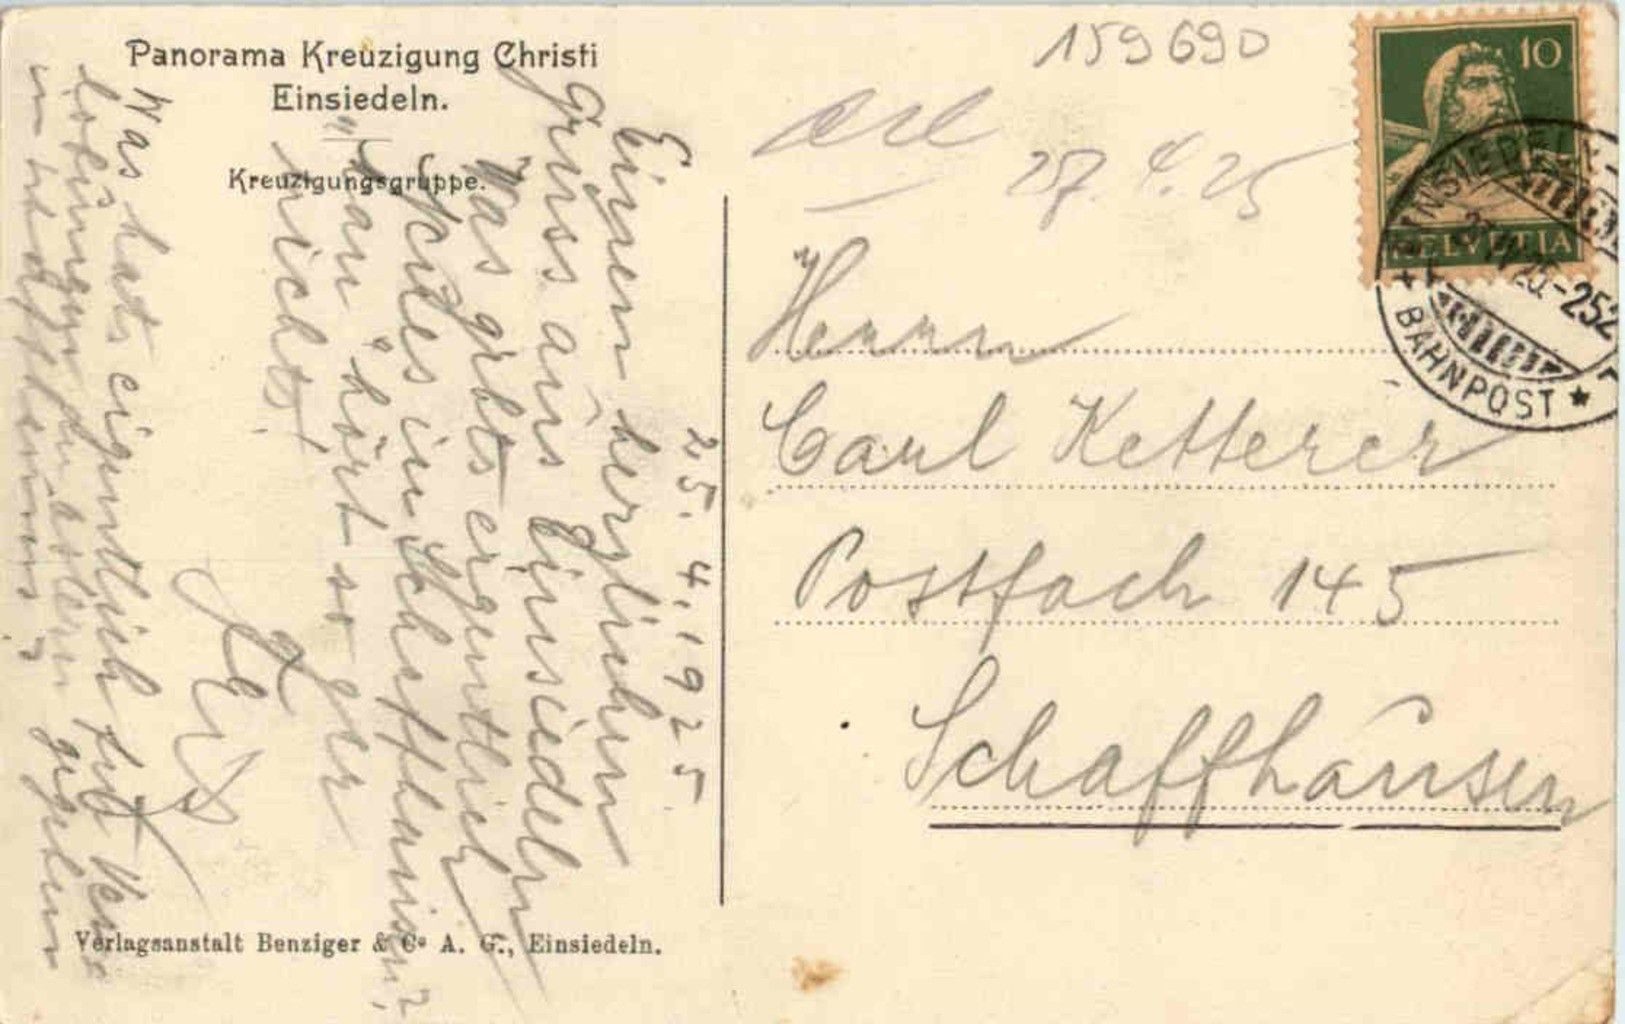 Panorama Kreuzigung Christi
Einsiedeln.
Kreuzigungsgruppe.
25. 4. 1925
Einen herzlichen
Gruss aus Einsiedeln
Was gibts eigentlich
Neues in Schaffhausen?
Man hört so gar
nichts!
Was hats eigentlich für Ver-
lobungen zu Ostern gegeben
in Schaffhausen?
Verlagsanstalt Benziger & Co A. G., Einsiedeln.
159690
27. 4. 25
Herrn
Carl Ketterer
Postfach 145
Schaffhausen
10
HELVETIA
EINSIEDELN
25.-252
BAHNPOST